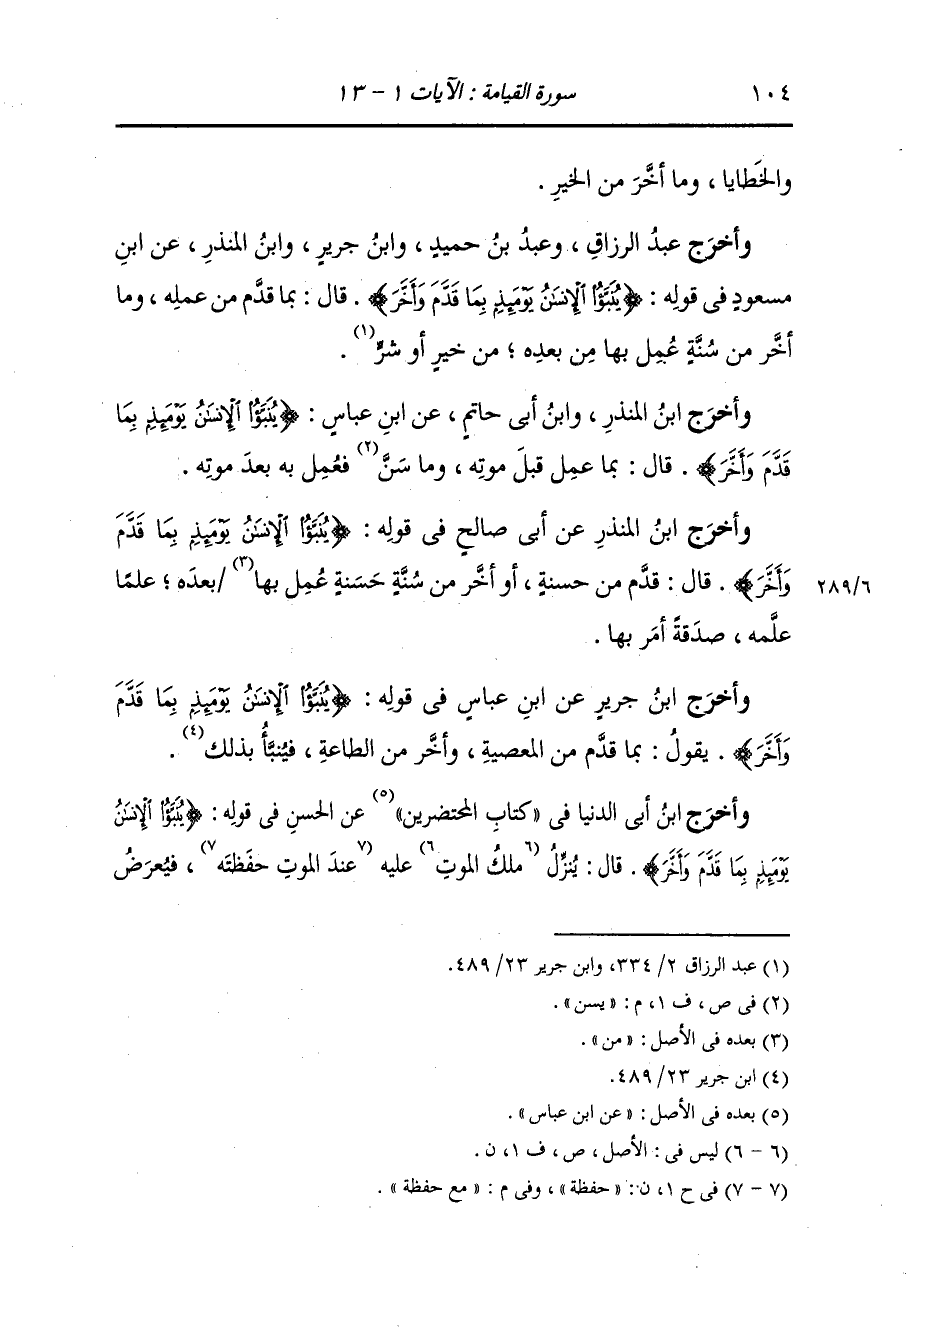 ١٠٤ سورة القيامة : الآيات ١ - ١٣
والخَطايا ، وما أخَّرَ من الخيرِ .
وأخرَج عبدُ الرزاقِ ، وعبدُ بنُ حميدٍ ، وابنُ جريرٍ ، وابنُ المنذرِ ، عن ابنِ
مسعودٍ فى قولِه : ﴿يُنَبَّؤُا۟ ٱلْإِنسَٰنُ يَوْمَئِذٍۭ بِمَا قَدَّمَ وَأَخَّرَ﴾ . قال : بما قدَّم من عملِه ، وما
أخَّر من سُنَّةٍ عُمِل بها مِن بعدِه ؛ من خيرٍ أو شرٍّ(١) .
وأخرَج ابنُ المنذرِ ، وابنُ أبى حاتمٍ ، عن ابنِ عباسٍ : ﴿يُنَبَّؤُا۟ ٱلْإِنسَٰنُ يَوْمَئِذٍۭ بِمَا
قَدَّمَ وَأَخَّرَ﴾ . قال : بما عمِل قبلَ موتِه ، وما سَنَّ(٢) فعُمِل به بعدَ موتِه .
وأخرَج ابنُ المنذرِ عن أبى صالحٍ فى قولِه : ﴿يُنَبَّؤُا۟ ٱلْإِنسَٰنُ يَوْمَئِذٍۭ بِمَا قَدَّمَ
وَأَخَّرَ﴾ . قال : قدَّم من حسنةٍ ، أو أخَّر من سُنَّةٍ حَسَنةٍ عُمِل بها(٣) /بعدَه ؛ علمًا ٢٨٩/٦
علَّمه ، صدَقةً أمَر بها .
وأخرَج ابنُ جريرٍ عن ابنِ عباسٍ فى قولِه : ﴿يُنَبَّؤُا۟ ٱلْإِنسَٰنُ يَوْمَئِذٍۭ بِمَا قَدَّمَ
وَأَخَّرَ﴾ . يقولُ : بما قدَّم من المعصيةِ ، وأخَّر من الطاعةِ ، فيُنبَّأُ بذلك(٤) .
وأخرَج ابنُ أبى الدنيا فى «كتابِ المحتضرين»(٥) عن الحسنِ فى قولِه : ﴿يُنَبَّؤُا۟ ٱلْإِنسَٰنُ
يَوْمَئِذٍۭ بِمَا قَدَّمَ وَأَخَّرَ﴾ . قال : يُنزِّلُ (٦ملكُ الموتِ٦) عليه (٧عندَ الموتِ حفَظتَه٧) ، فيُعرَضُ
(١) عبد الرزاق ٢/ ٣٣٤، وابن جرير ٢٣/ ٤٨٩.
(٢) فى ص ، ف ١، م : « يسن » .
(٣) بعده فى الأصل : « من » .
(٤) ابن جرير ٢٣/ ٤٨٩.
(٥) بعده فى الأصل : « عن ابن عباس » .
(٦ - ٦) ليس فى : الأصل ، ص ، ف ١، ن .
(٧ - ٧) فى ح ١، ن : « حفظة » ، وفى م : « مع حفظة » .